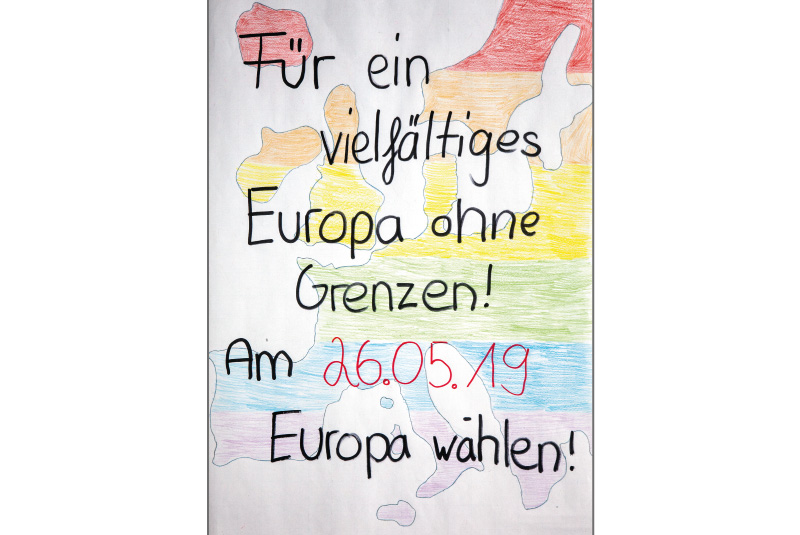 Für ein
vielfältiges
Europa ohne
Grenzen!
Am 26.05.19
Europa wählen!